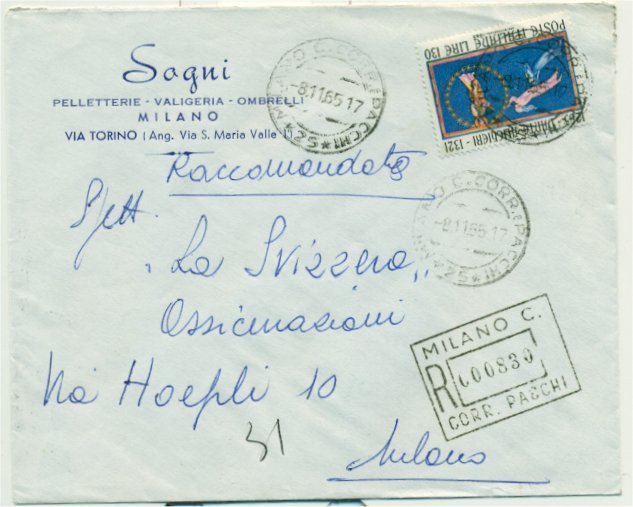 Sogni
PELLETTERIE - VALIGERIA - OMBRELLI
MILANO
VIA TORINO (Ang. Via S. Maria Valle 1)
MILANO C. CORR. E PACCHI *25*
-8.11.65.17
POSTE ITALIANE LIRE 130
1265 - DANTE ALIGHIERI - 1321
Raccomandata
Spett.
MILANO C. CORR. E PACCHI *25*
-8.11.65.17
"La Svizzera"
Assicurazioni
Via Hoepli 10
31
Milano
MILANO C.
R 000830
CORR. PACCHI